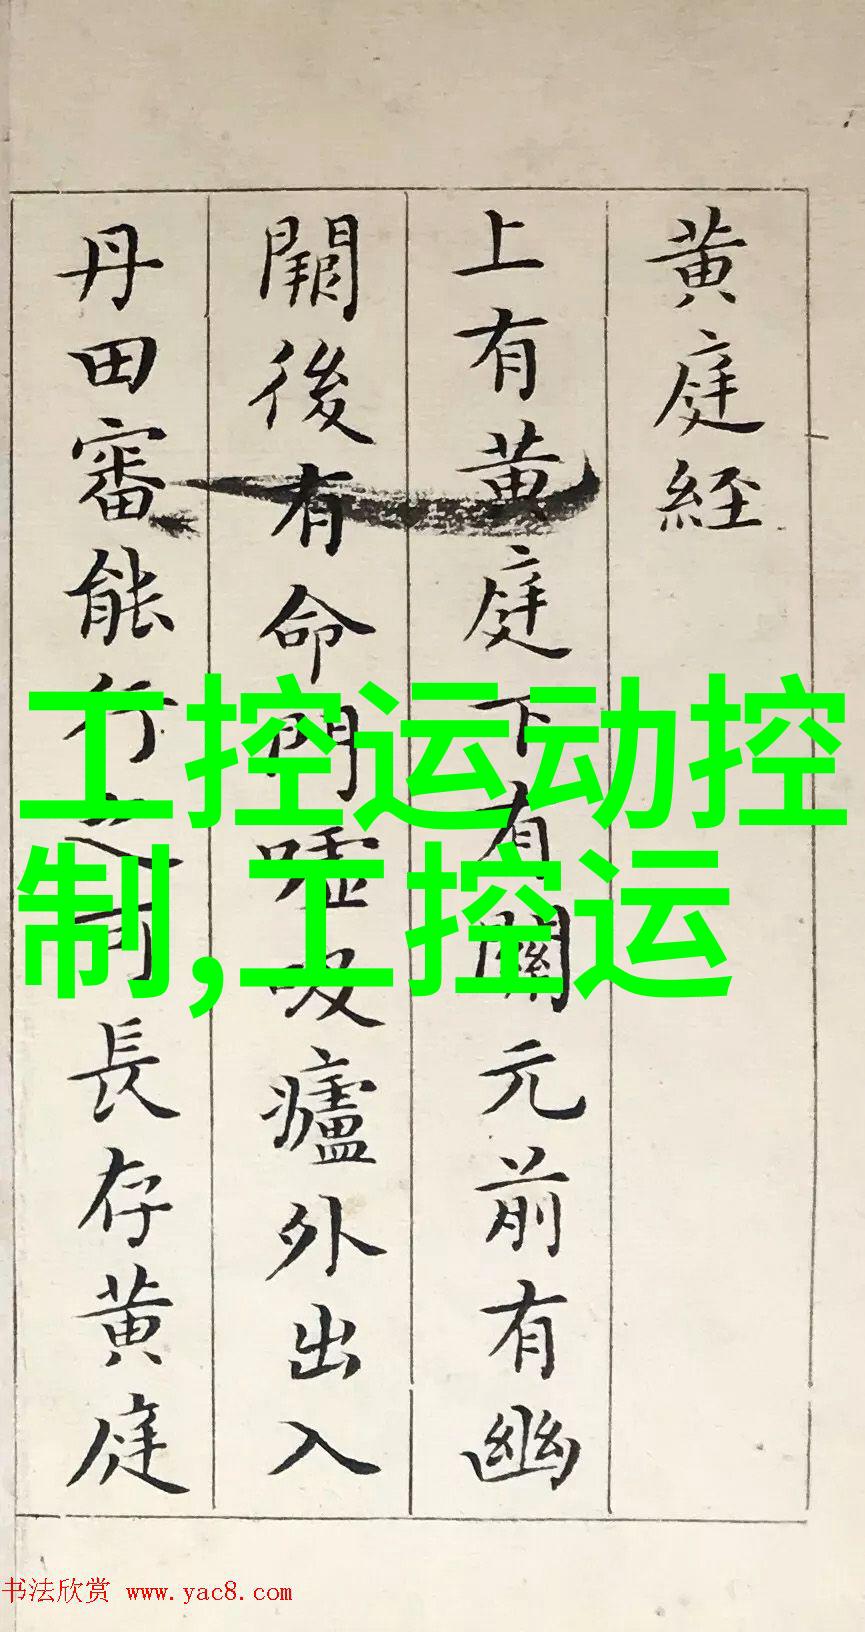 黄庭經
上有黄庭下有關元前有幽
闕後有命門嘘吸廬外出入
丹田審能行之可長存黄庭
工控运动控
制,工控运
书法欣赏 www.yac8.com